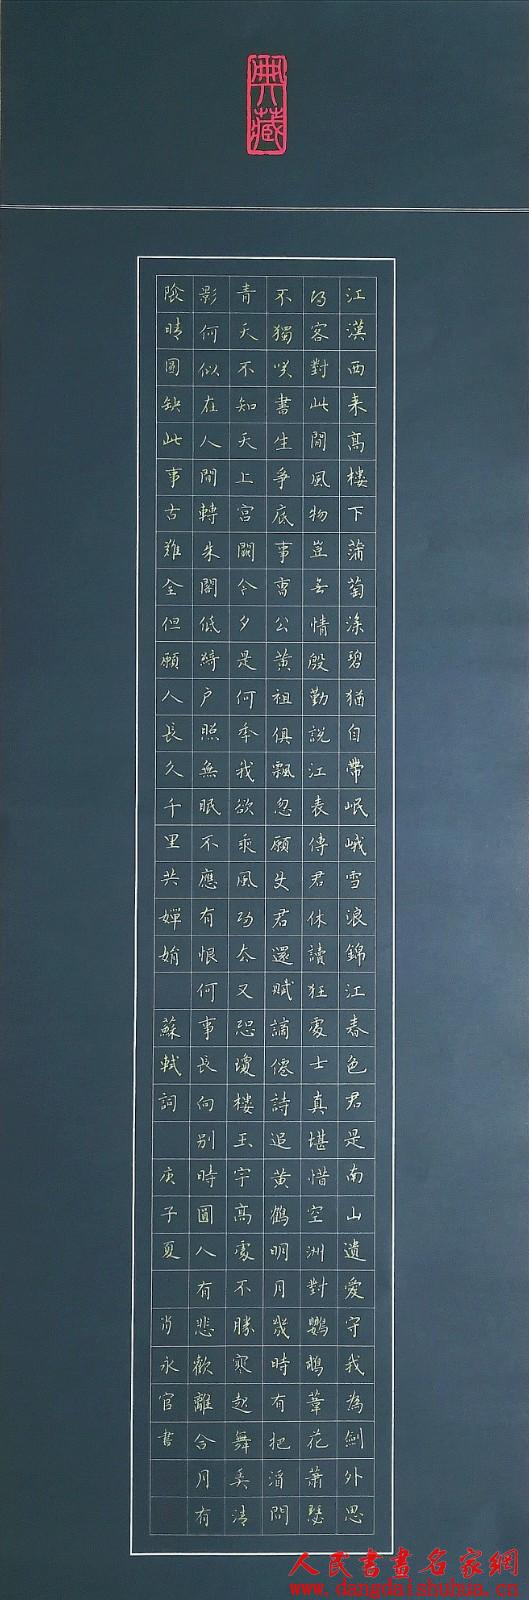 典藏
江漢西来高樓下蒲萄深碧猶自帶岷峨雪浪錦江春色君是南山遺愛守我為劍外思
歸客對此間風物豈無情殷勤說江表傳君休讀狂處士真堪惜空洲對鸚鵡葦花蕭瑟
不獨咲書生爭底事曹公黃祖俱飄忽願使君還賦謫僊詩追黃鶴明月幾時有把酒問
青天不知天上宮闕今夕是何年我欲乘風歸去又恐瓊樓玉宇高處不勝寒起舞弄清
影何似在人間轉朱閣低綺戶照無眠不應有恨何事長向別時圓人有悲歡離合月有
陰晴圓缺此事古難全但願人長久千里共嬋娟 蘇軾詞 庚子夏 肖永官書
人民書畫名家網
www.dangdaishuhua.com